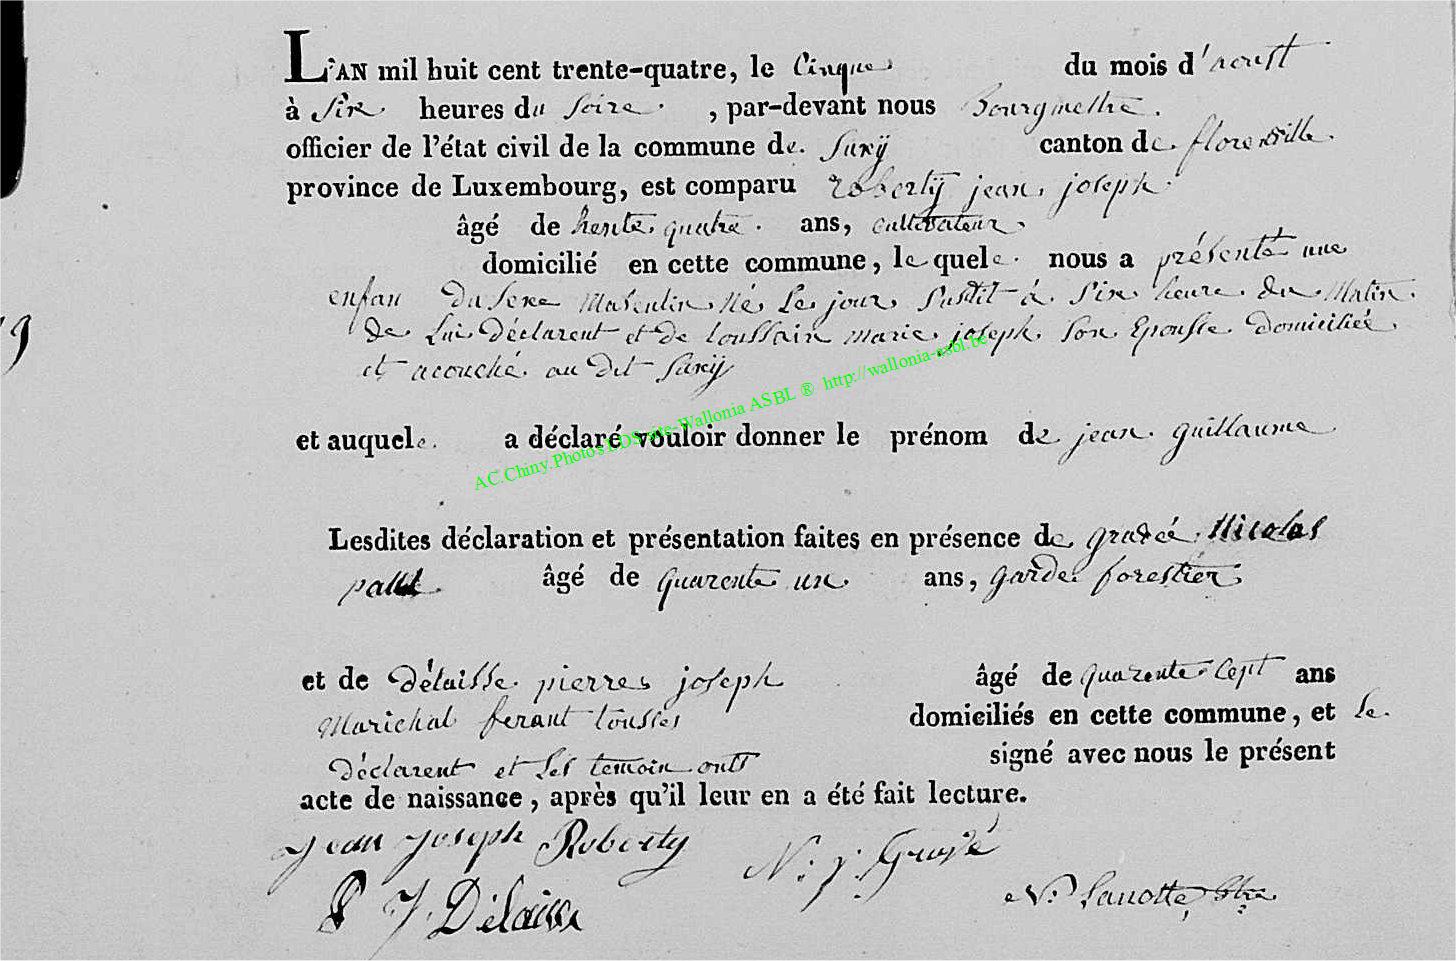 L'AN mil huit cent trente-quatre, le Cinque du mois d'aoust
à Six heures du Soire, par-devant nous Bourgmestre
officier de l'état civil de la commune de Suxÿ canton de florenville
province de Luxembourg, est comparu robertÿ jean joseph
âgé de trente quatre ans, cultivateur
domicilié en cette commune, le quele nous a présenté une
enfan du sexe Masculin Né Le jour Susdit à Six heure du Matin
de Lui Déclarent et de toussain marie joseph Son Epousse domiciliée
et acouché au dit Suxÿ
et auquele a déclaré vouloir donner le prénom de jean guillaume
AC.Chiny.Photos LDS site-Wallonia ASBL ® http://wallonia-asbl.be
Lesdites déclaration et présentation faites en présence de Nicolas
âgé de quarente un ans, garde forestier
et de Délaisse pierres joseph âgé de quarente Sept ans
Marichal ferant tousses domiciliés en cette commune, et Le
Déclarent et Les temoin onts signé avec nous le présent
acte de naissance, après qu'il leur en a été fait lecture.
Jean Joseph Roberty N: j:
P J Délaisse N: Lanotte